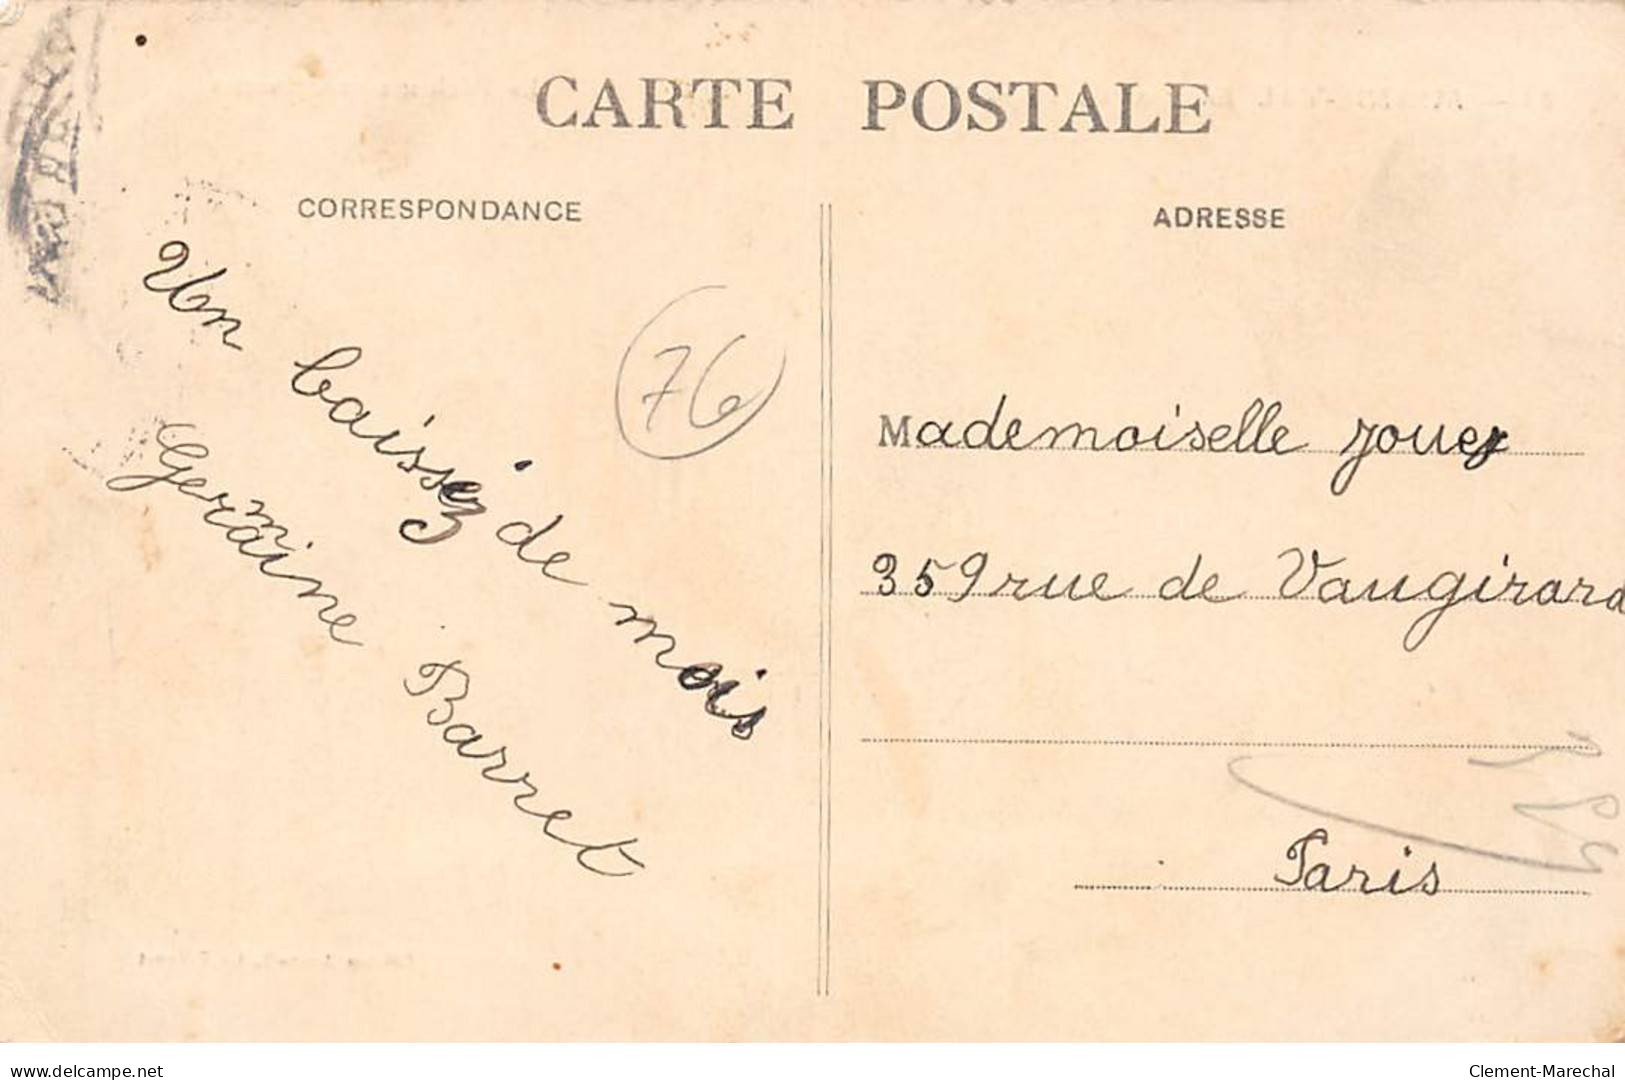 CARTE POSTALE
CORRESPONDANCE
ADRESSE
Un baissez de mois
Germaine Barret
76
Mademoiselle Jouer
359 rue de Vaugirard
Paris
www.delcampe.net
Clement-Marechal